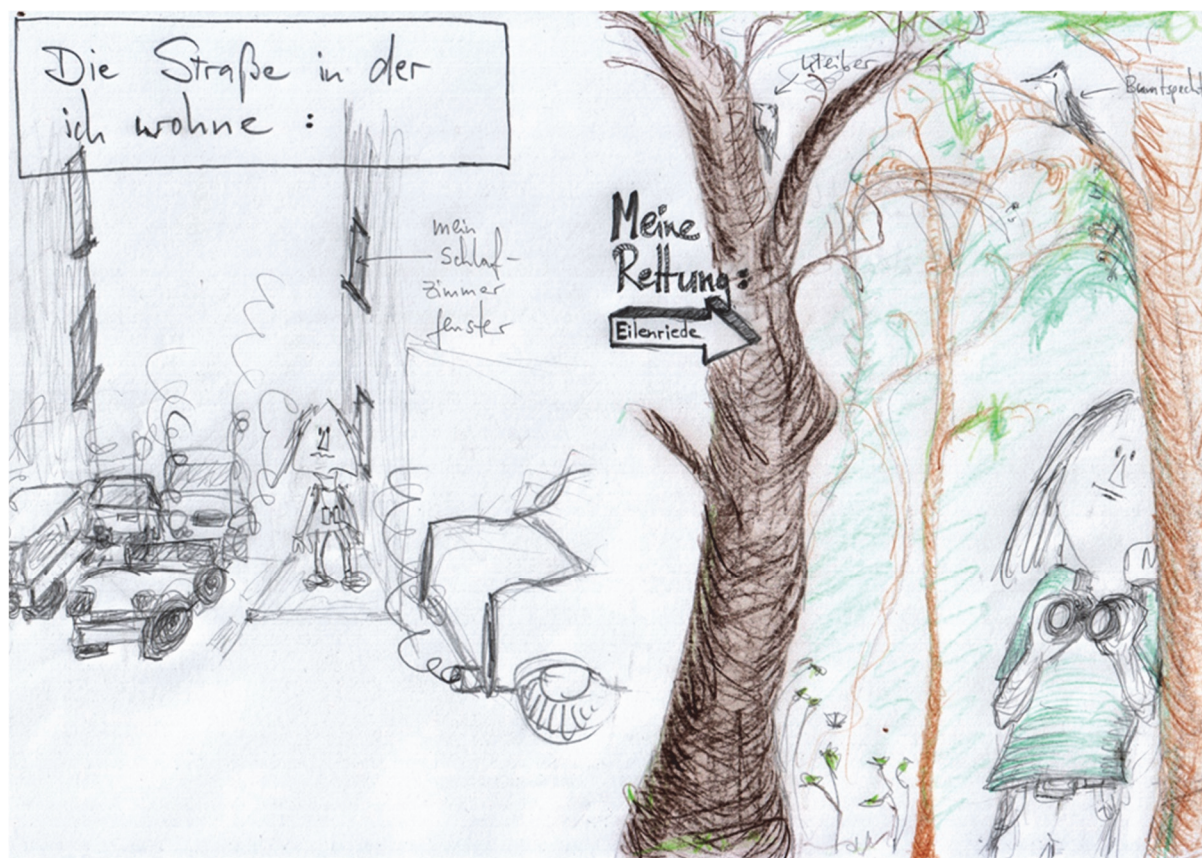 Die Straße in der
ich wohne :
mein
Schlaf-
zimmer
fenster
Meine
Rettung:
Eilenriede
Kleiber
Buntspecht